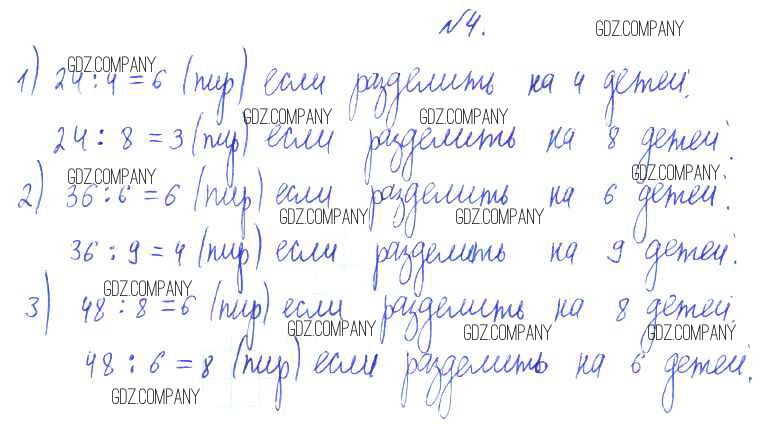 №4.
1) 24 : 4 = 6 (пир) если разделить на 4 детей.
24 : 8 = 3 (пир) если разделить на 8 детей.
2) 36 : 6 = 6 (пир) если разделить на 6 детей.
36 : 9 = 4 (пир) если разделить на 9 детей.
3) 48 : 8 = 6 (пир) если разделить на 8 детей.
48 : 6 = 8 (пир) если разделить на 6 детей.
GDZ.COMPANY
GDZ.COMPANY
GDZ.COMPANY
GDZ.COMPANY
GDZ.COMPANY
GDZ.COMPANY
GDZ.COMPANY
GDZ.COMPANY
GDZ.COMPANY
GDZ.COMPANY
GDZ.COMPANY
GDZ.COMPANY
GDZ.COMPANY